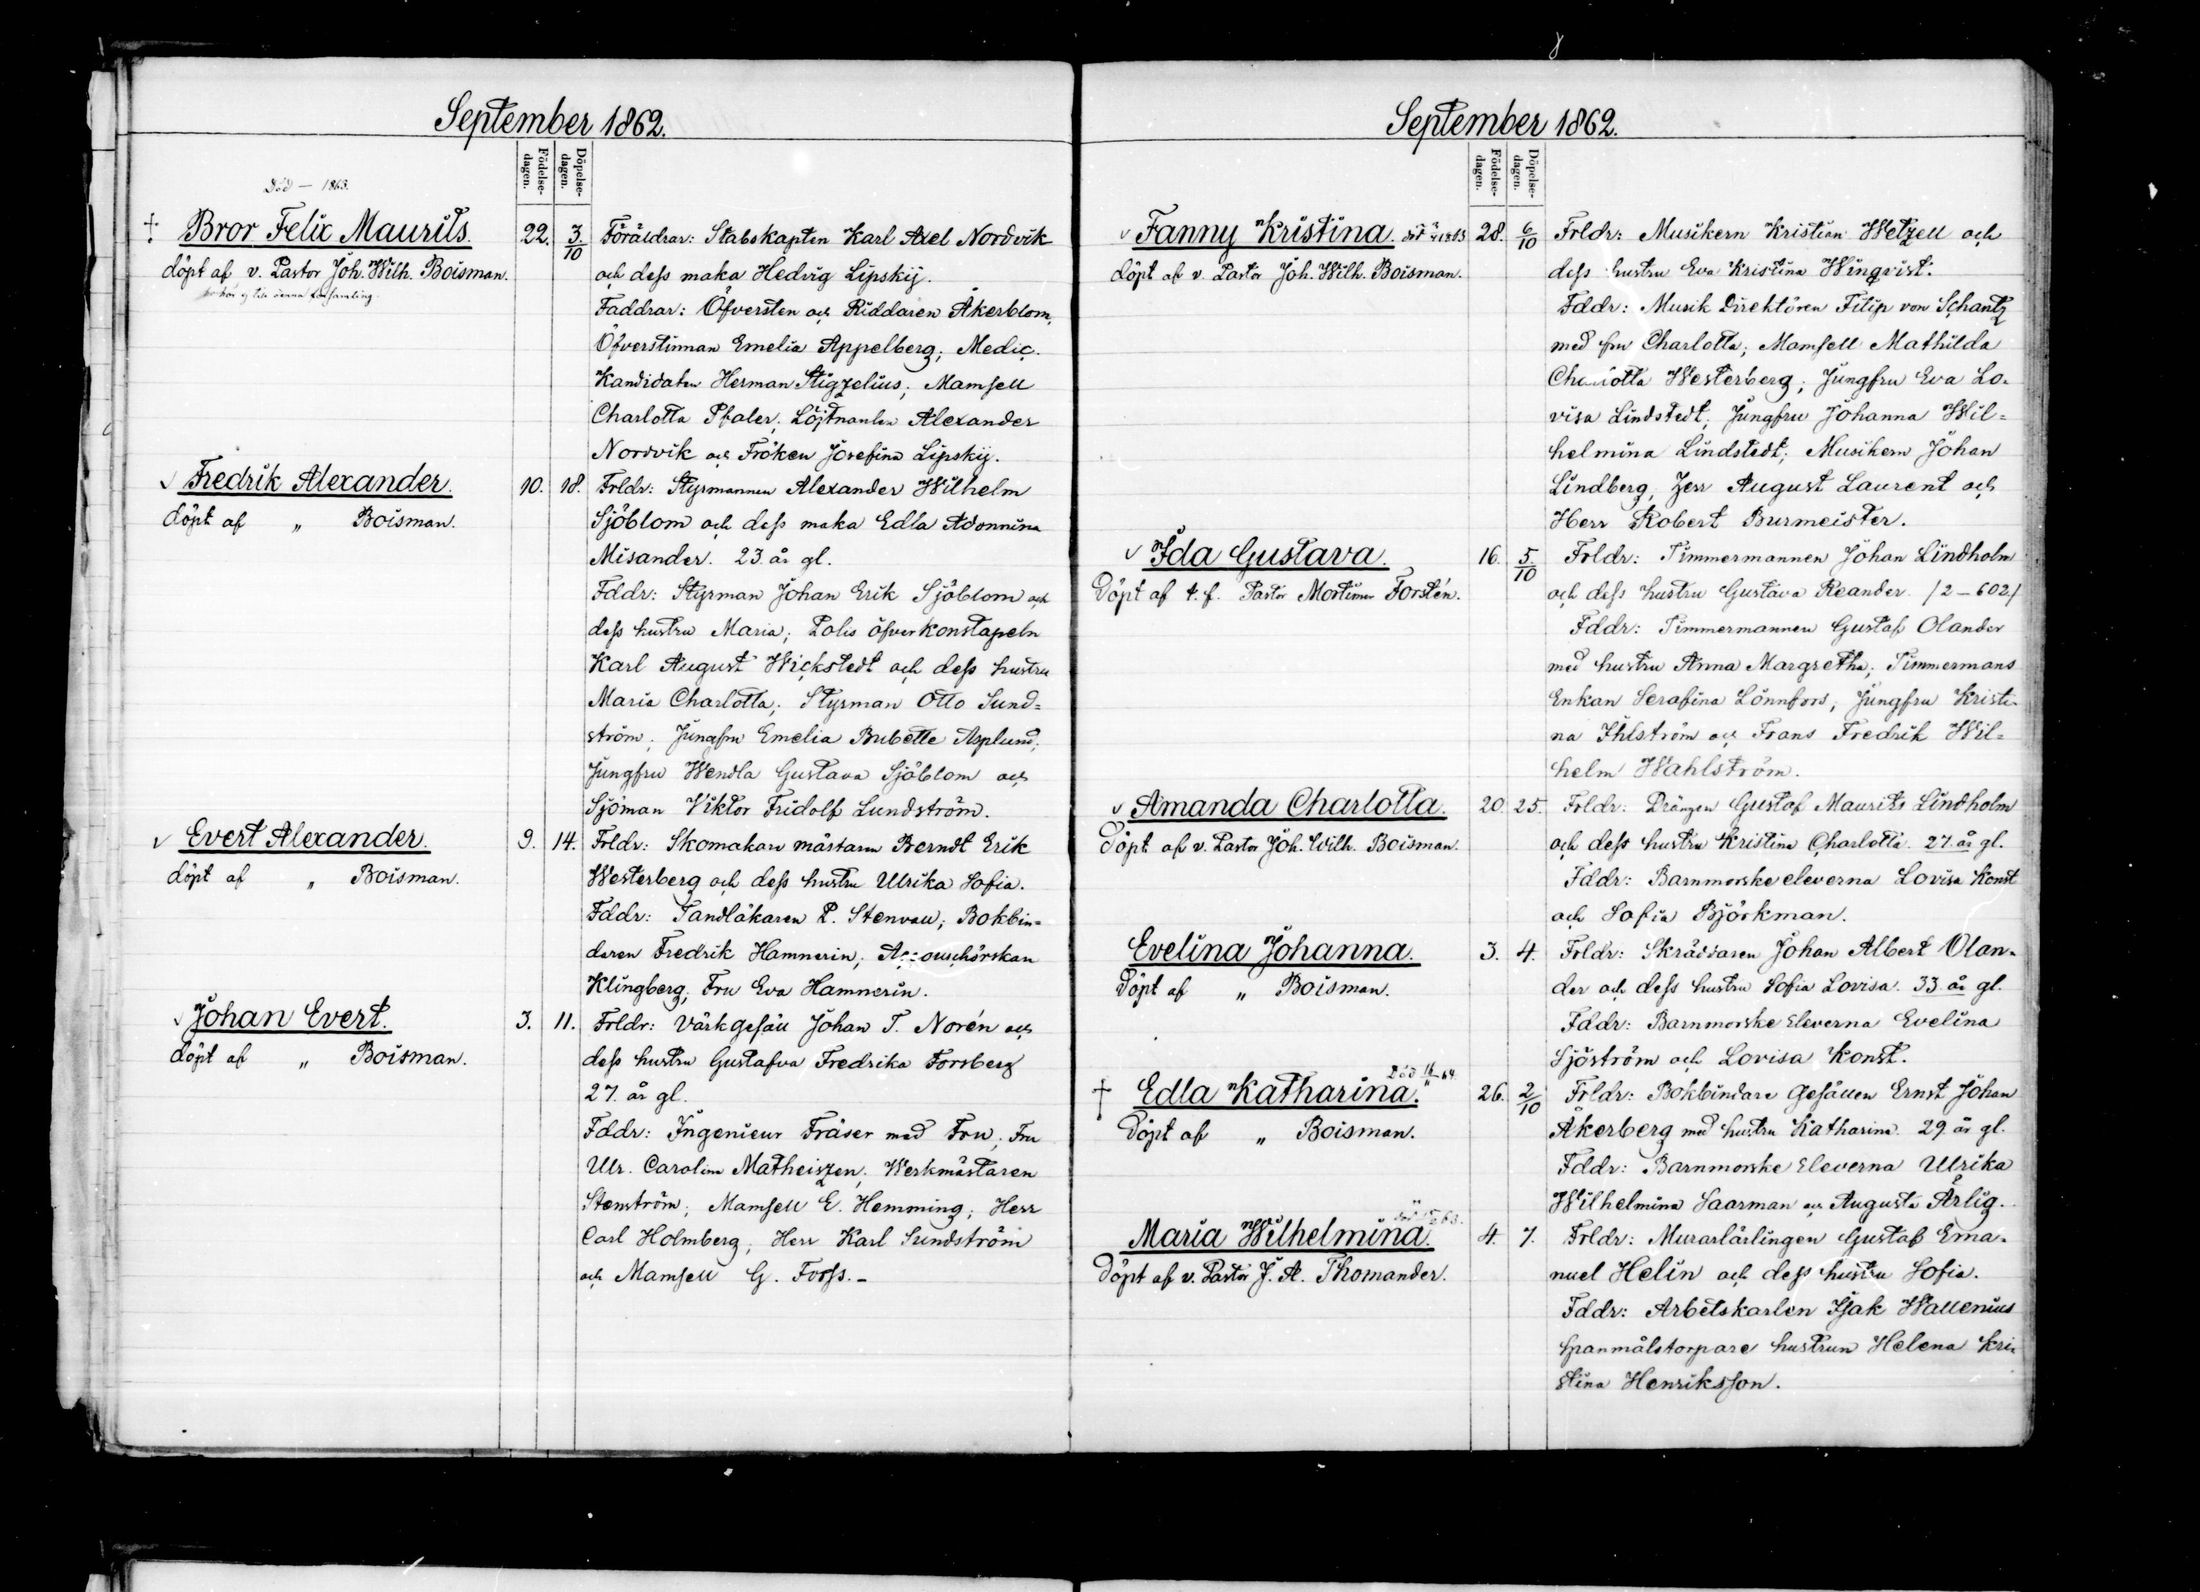 8
September 1862.
Födelse-dagen. Döpelse-dagen.
Död — 1863.
Bror Felix Maurits. 22. 3/10 Föräldrar: Stabskapten Karl Axel Nordvik
döpt af v. Pastor Joh. Wilh. Boisman. och dess maka Hedvig Lipskij.
denna församling
Faddrar: Öfversten och Riddaren Åkerblom,
Öfverstinnan Emelia Appelberg; Medic.
Kandidaten Herman Stigzelius; Mamsell
Charlotta Pfaler; Löjtnanten Alexander
Nordvik och Fröken Josefina Lipskij.
Fredrik Alexander. 10. 18. Frldr: Styrmannen Alexander Wilhelm
döpt af „ Boisman. Sjöblom och dess maka Edla Adonnina
Misander. 23 år gl.
Fddr: Styrman Johan Erik Sjöblom och
dess hustru Maria; Polis öfverkonstapeln
Karl August Wickstedt och dess hustru
Maria Charlotta; Styrman Otto Sund=
ström; Jungfru Emelia Bubette Asplund;
Jungfru Wendla Gustava Sjöblom och
Sjöman Viktor Fridolf Lundström.
Evert Alexander. 9. 14. Frldr: Skomakare mästaren Berndt Erik
döpt af „ Boisman. Westerberg och dess hustru Ulrika Sofia.
Fddr: Tandläkaren P. Stenvall; Bokbin=
daren Fredrik Hamnerin; Accouschörskan
Klingberg; Fru Eva Hamnerin.
Johan Evert. 3. 11. Frldr: Värkgesäll Johan T. Norén och
döpt af „ Boisman. dess hustru Gustafva Fredrika Forsberg
27. år gl.
Fddr: Ingenieur Fräser med Fru; Fru
Ulr. Carolina Matheiszen; Werkmästaren
Stenström; Mamsell E. Hemming; Herr
Carl Holmberg; Herr Karl Sundström
och Mamsell G. Forss.—
September 1862.
Födelse-dagen. Döpelse-dagen.
Fanny Kristina. död 1863 28. 6/10 Frldr: Musikern Kristian Wetzell och
döpt af v. Pastor Joh. Wilh. Boisman. dess hustru Eva Kristina Winqvist.
Fddr: Musik Direktören Filip von Schantz
med fru Charlotta; Mamsell Mathilda
Charlotta Westerberg; Jungfru Eva Lo=
visa Lindstedt; Jungfru Johanna Wil=
helmina Lindstedt; Musikern Johan
Lindberg, Herr August Laurent och
Herr Robert Burmeister.
Ida Gustava. 16. 5/10 Frldr: Timmermannen Johan Lindholm
Döpt af t. f. Pastor Mortimer Forstén. och dess hustru Gustava Reander. /2–602/
Fddr: Timmermannen Gustaf Olander
med hustru Anna Margretha; Timmermans
Enkan Serafina Lönnfors; Jungfru Kristi=
na Ihlström och Frans Fredrik Wil=
helm Wahlström.
Amanda Charlotta. 20. 25. Frldr: Drängen Gustaf Maurits Lindholm
Döpt af v. Pastor Joh. Wilh. Boisman. och dess hustru Kristina Charlotta. 27. år gl.
Fddr: Barnmorske eleverna Lovisa Konst
och Sofia Björkman.
Evelina Johanna. 3. 4. Frldr: Skräddaren Johan Albert Olan=
Döpt af „ Boisman. der och dess hustru Sofia Lovisa. 33 år gl.
Fddr: Barnmorske Eleverna Evelina
Sjöström och Lovisa Konst.
Död 64.
Edla Katharina. 26. 2/10 Frldr: Bokbindare Gesällen Ernst Johan
Döpt af „ Boisman. Åkerberg med hustru Katharina. 29 år gl.
Fddr: Barnmorske Eleverna Ulrika
Wilhelmina Saarman och Augusta Ärlig.
63.
Maria Wilhelmina. 4. 7. Frldr: Murarlärlingen Gustaf Ema=
Döpt af v. Pastor J. A. Thomander. nuel Helin och dess hustru Sofia.
Fddr: Arbetskarlen Isak Wallenius
Spanmålstorpare hustrun Helena Kri=
stina Henriksson.